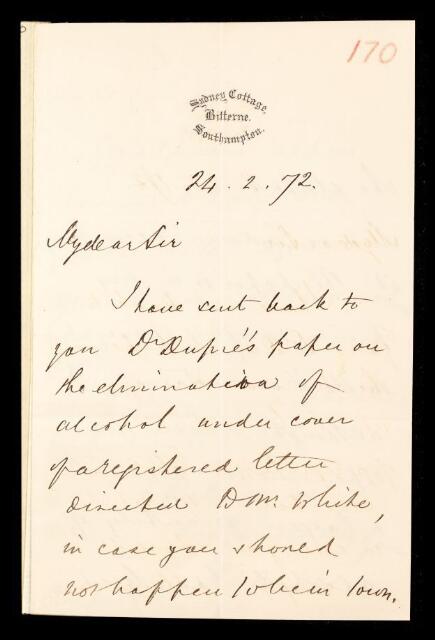 170
Sydney Cottage,
Bitterne.
Southampton.
24. 2. 72.
My dear Sir
I have sent back to
you Dr Dupré's paper on
the elimination of
alcohol under cover
of a registered letter
directed D W. White,
in case you should
not happen to be in town.